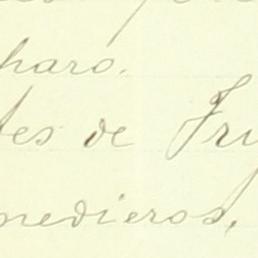 haro.
tes de Fru
nedieros,